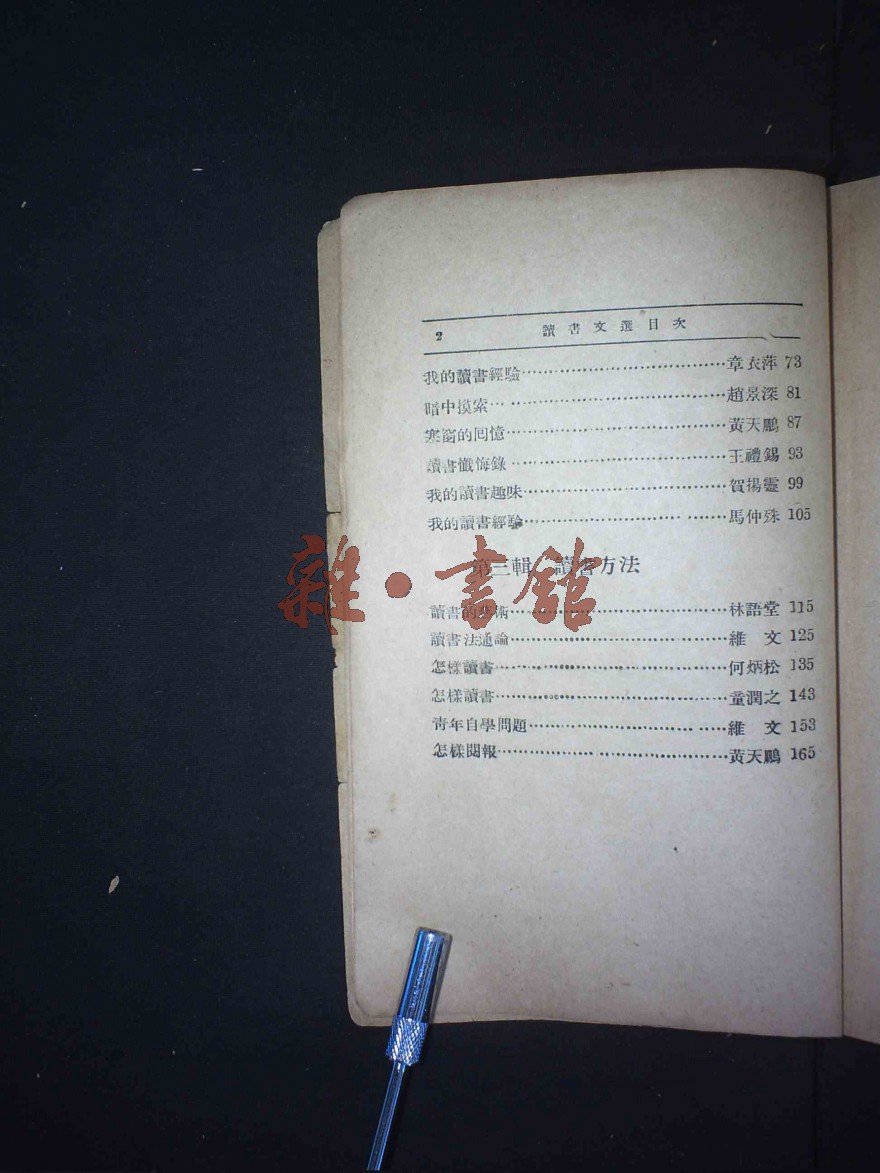 2 讀書文選目次
我的讀書經驗……章衣萍 73
暗中摸索……趙景深 81
寒窗的回憶……黃天鵬 87
讀書懺悔錄……王禮錫 93
我的讀書趣味……賀揚靈 99
我的讀書經驗……馬仲殊 105
第三輯 讀書方法
雜·書館
讀書的藝術……林語堂 115
讀書法通論……維文 125
怎樣讀書……何炳松 135
怎樣讀書……童潤之 143
靑年自學問題……維文 153
怎樣閱報……黃天鵬 165